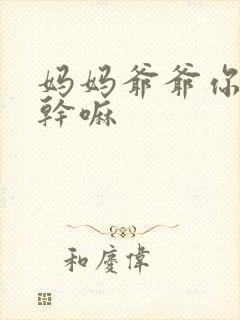 妈妈爷爷你
幹嘛
和慶偉